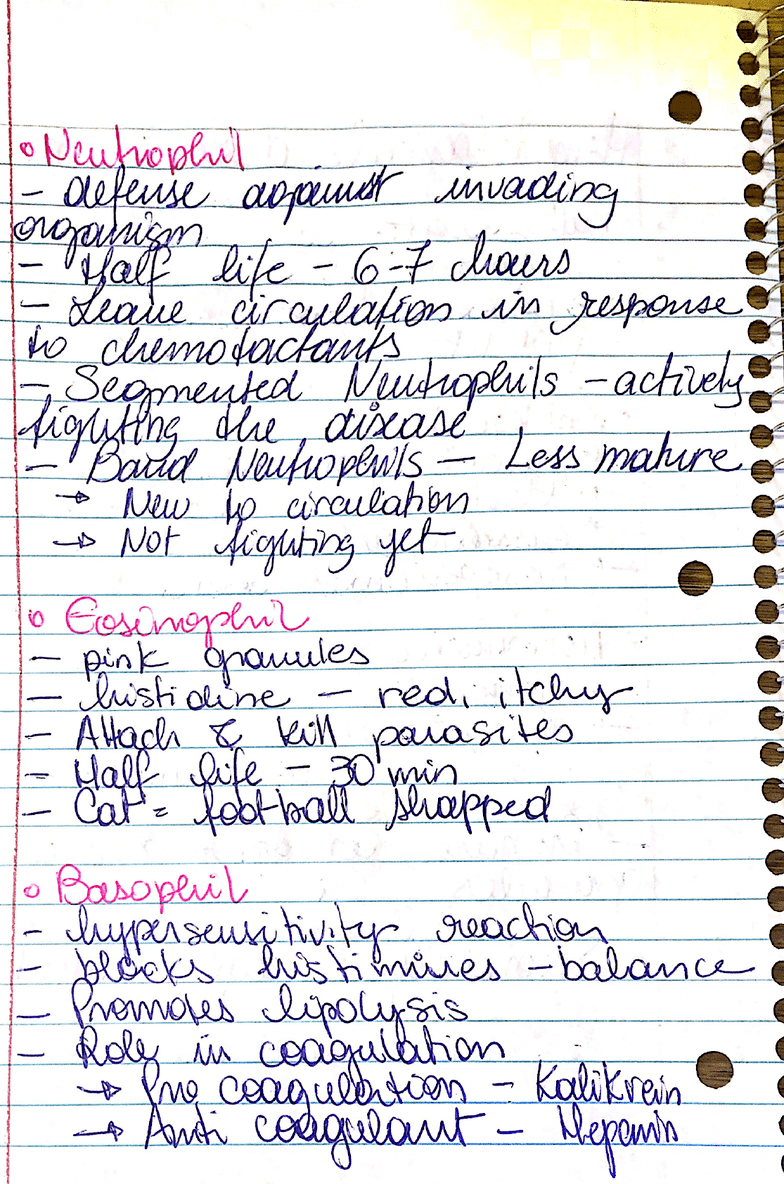 o Neutrophil
- defense against invading
organism
- Half life - 6-7 hours
- Leave circulation in response
to chemotactants
- Segmented Neutrophils - actively
fighting the disease
- Band Neutrophils - Less mature
→ New to circulation
→ Not fighting yet
o Eosinophil
- pink granules
- histidine - red, itchy
- Attach & kill parasites
- Half life - 30 min
- Cat = football shapped
o Basophil
- hypersensitivity reaction
- blocks histimines - balance
- Promotes lipolysis
- Role in coagulation
→ Pro coagulation - Kalikrein
→ Anti coagulant - Heparin